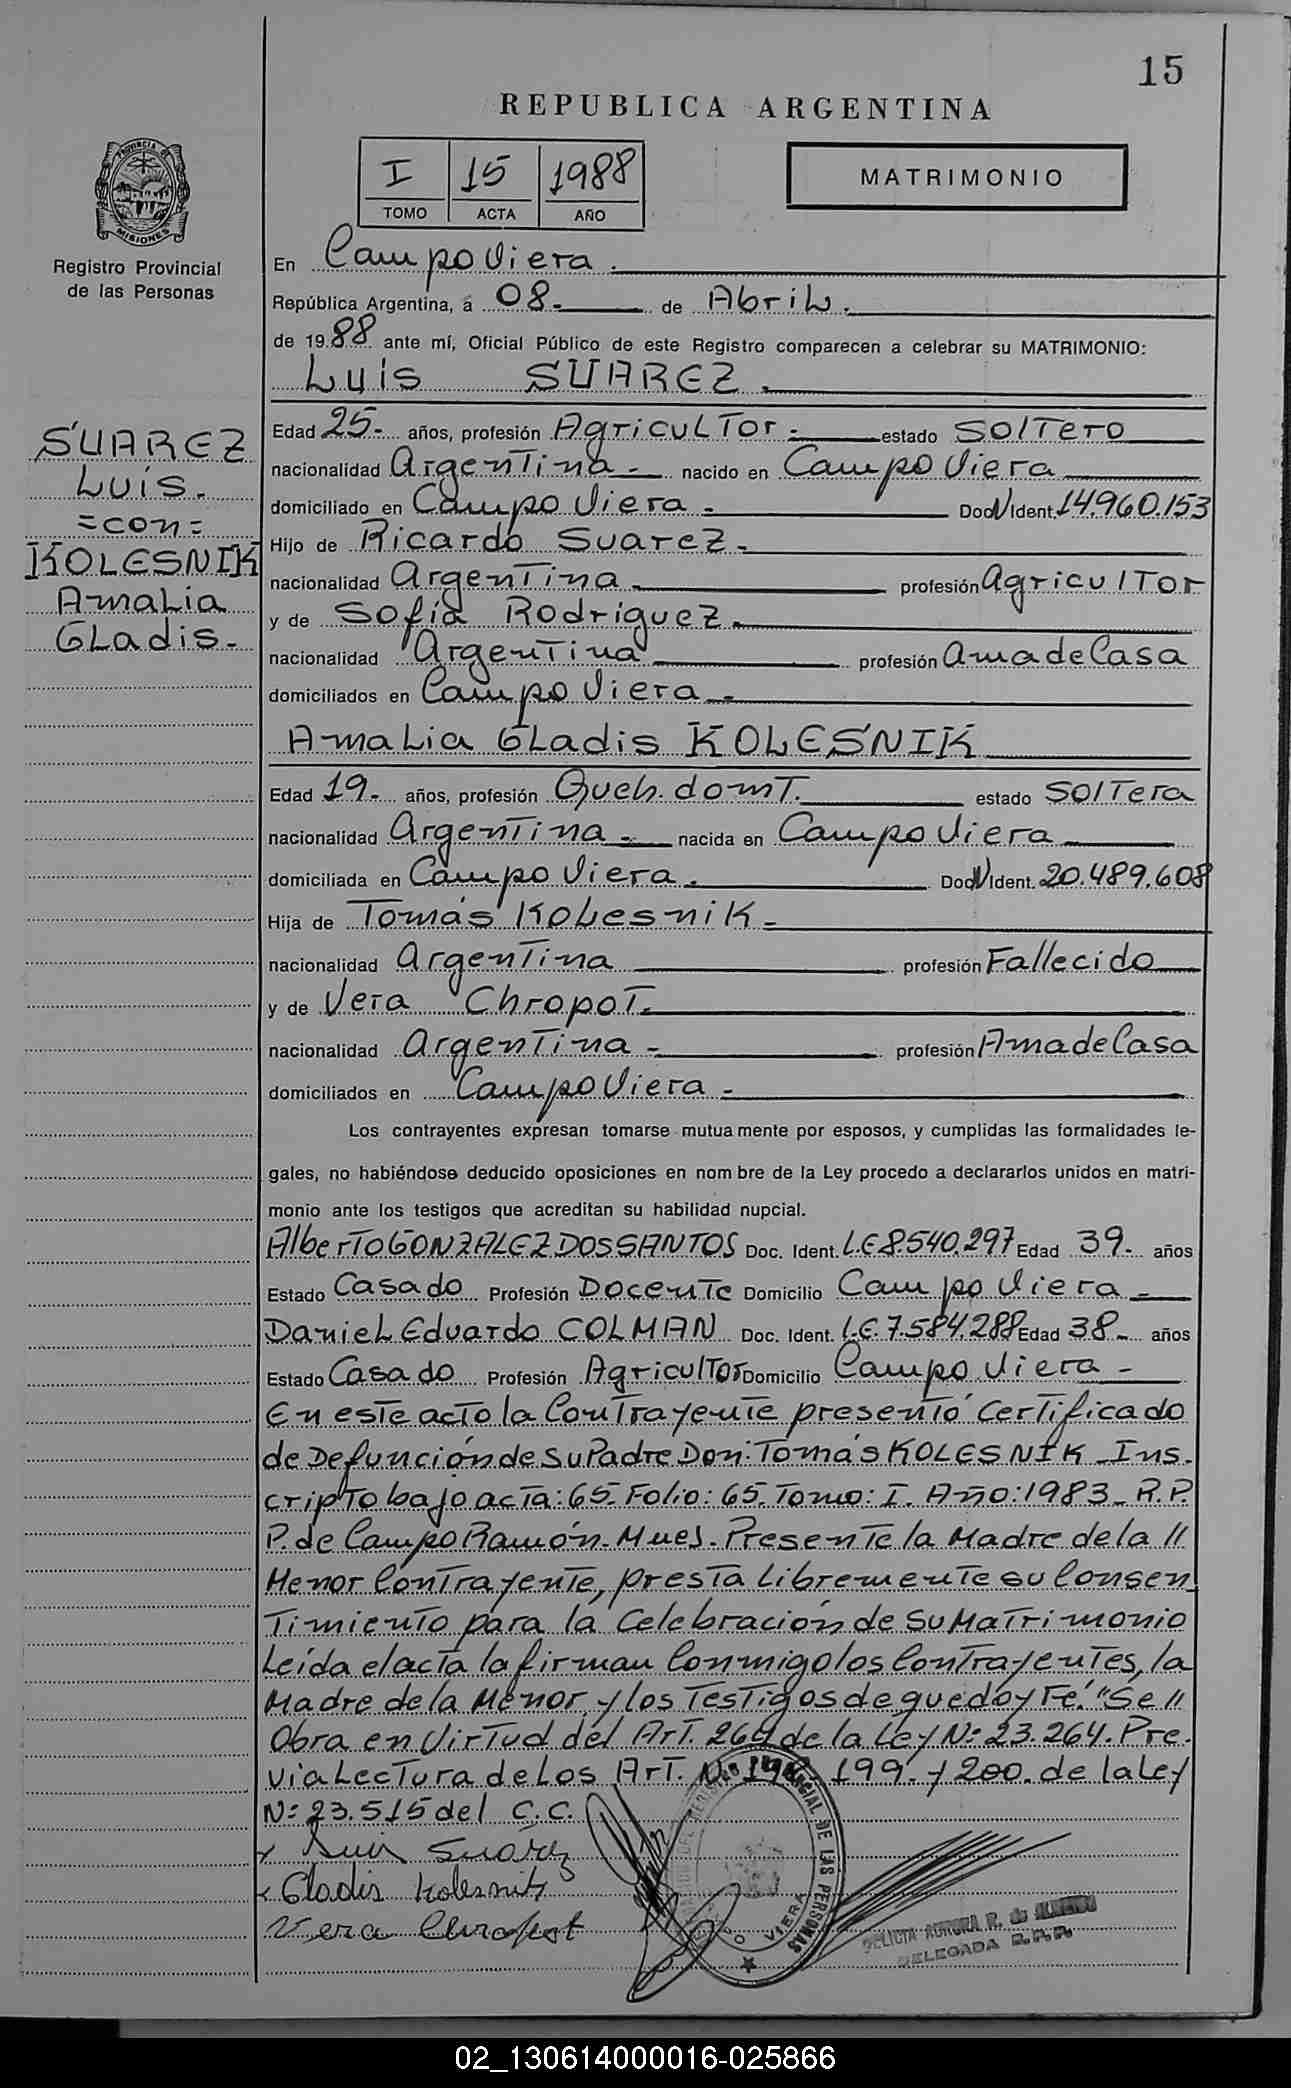 15
REPUBLICA ARGENTINA
I 15 1988
TOMO ACTA AÑO
MATRIMONIO
PROVINCIA DE
MISIONES
Registro Provincial
de las Personas
En Campo Viera.
República Argentina, a 08.- de Abril.
de 1988 ante mí, Oficial Público de este Registro comparecen a celebrar su MATRIMONIO:
Luis SUAREZ.
SUAREZ
Luis.-
=con=
KOLESNIK
Amalia
Gladis.-
Edad 25.- años, profesión Agricultor.- estado Soltero
nacionalidad Argentina.- nacido en Campo Viera
domiciliado en Campo Viera.- Doc N Ident. 14.960.153
Hijo de Ricardo Suarez.-
nacionalidad Argentina. profesión Agricultor
y de Sofía Rodriguez.
nacionalidad Argentina profesión Ama de Casa
domiciliados en Campo Viera.-
Amalia Gladis KOLESNIK
Edad 19.- años, profesión Queh. domt. estado Soltera
nacionalidad Argentina.- nacida en Campo Viera
domiciliada en Campo Viera. Doc N Ident. 20.489.608
Hija de Tomás Kolesnik.-
nacionalidad Argentina profesión Fallecido
y de Vera Chropot.
nacionalidad Argentina.- profesión Ama de Casa
domiciliados en Campo Viera.-
Los contrayentes expresan tomarse mutuamente por esposos, y cumplidas las formalidades le-
gales, no habiéndose deducido oposiciones en nombre de la Ley procedo a declararlos unidos en matri-
monio ante los testigos que acreditan su habilidad nupcial.
Alberto GONZALEZ DOS SANTOS Doc. Ident. L.E 8.540.297 Edad 39.- años
Estado Casado Profesión Docente Domicilio Campo Viera.-
Daniel Eduardo COLMAN Doc. Ident. L.E. 7.584.288 Edad 38.- años
Estado Casado Profesión Agricultor Domicilio Campo Viera.-
En este acto la Contrayente presentó Certificado
de Defunción de su Padre Don: Tomás KOLESNIK. Ins-
cripto bajo acta: 65. Folio: 65. Tomo: I. Año: 1983. R.P.
P. de Campo Ramón. Mnes. Presente la Madre de la //
Menor Contrayente, presta Libremente su Consen
timiento para la Celebración de su Matrimonio
Leída el acta la firman Conmigo los Contrayentes, la
Madre de la Menor, y los Testigos de que doy Fé. "Se //
Obra en Virtud del Art. 264 de la Ley N: 23.264. Pre-
via Lectura de Los Art. N: 199. y 200. de la Ley
N: 23.515 del C.C.
x Luis Suárez
x Gladis Kolesnik
Vera Chropot
PROVINCIAL DE LAS PERSONAS
VIERA
DELEGADA R.P.P.
02_130614000016-025866